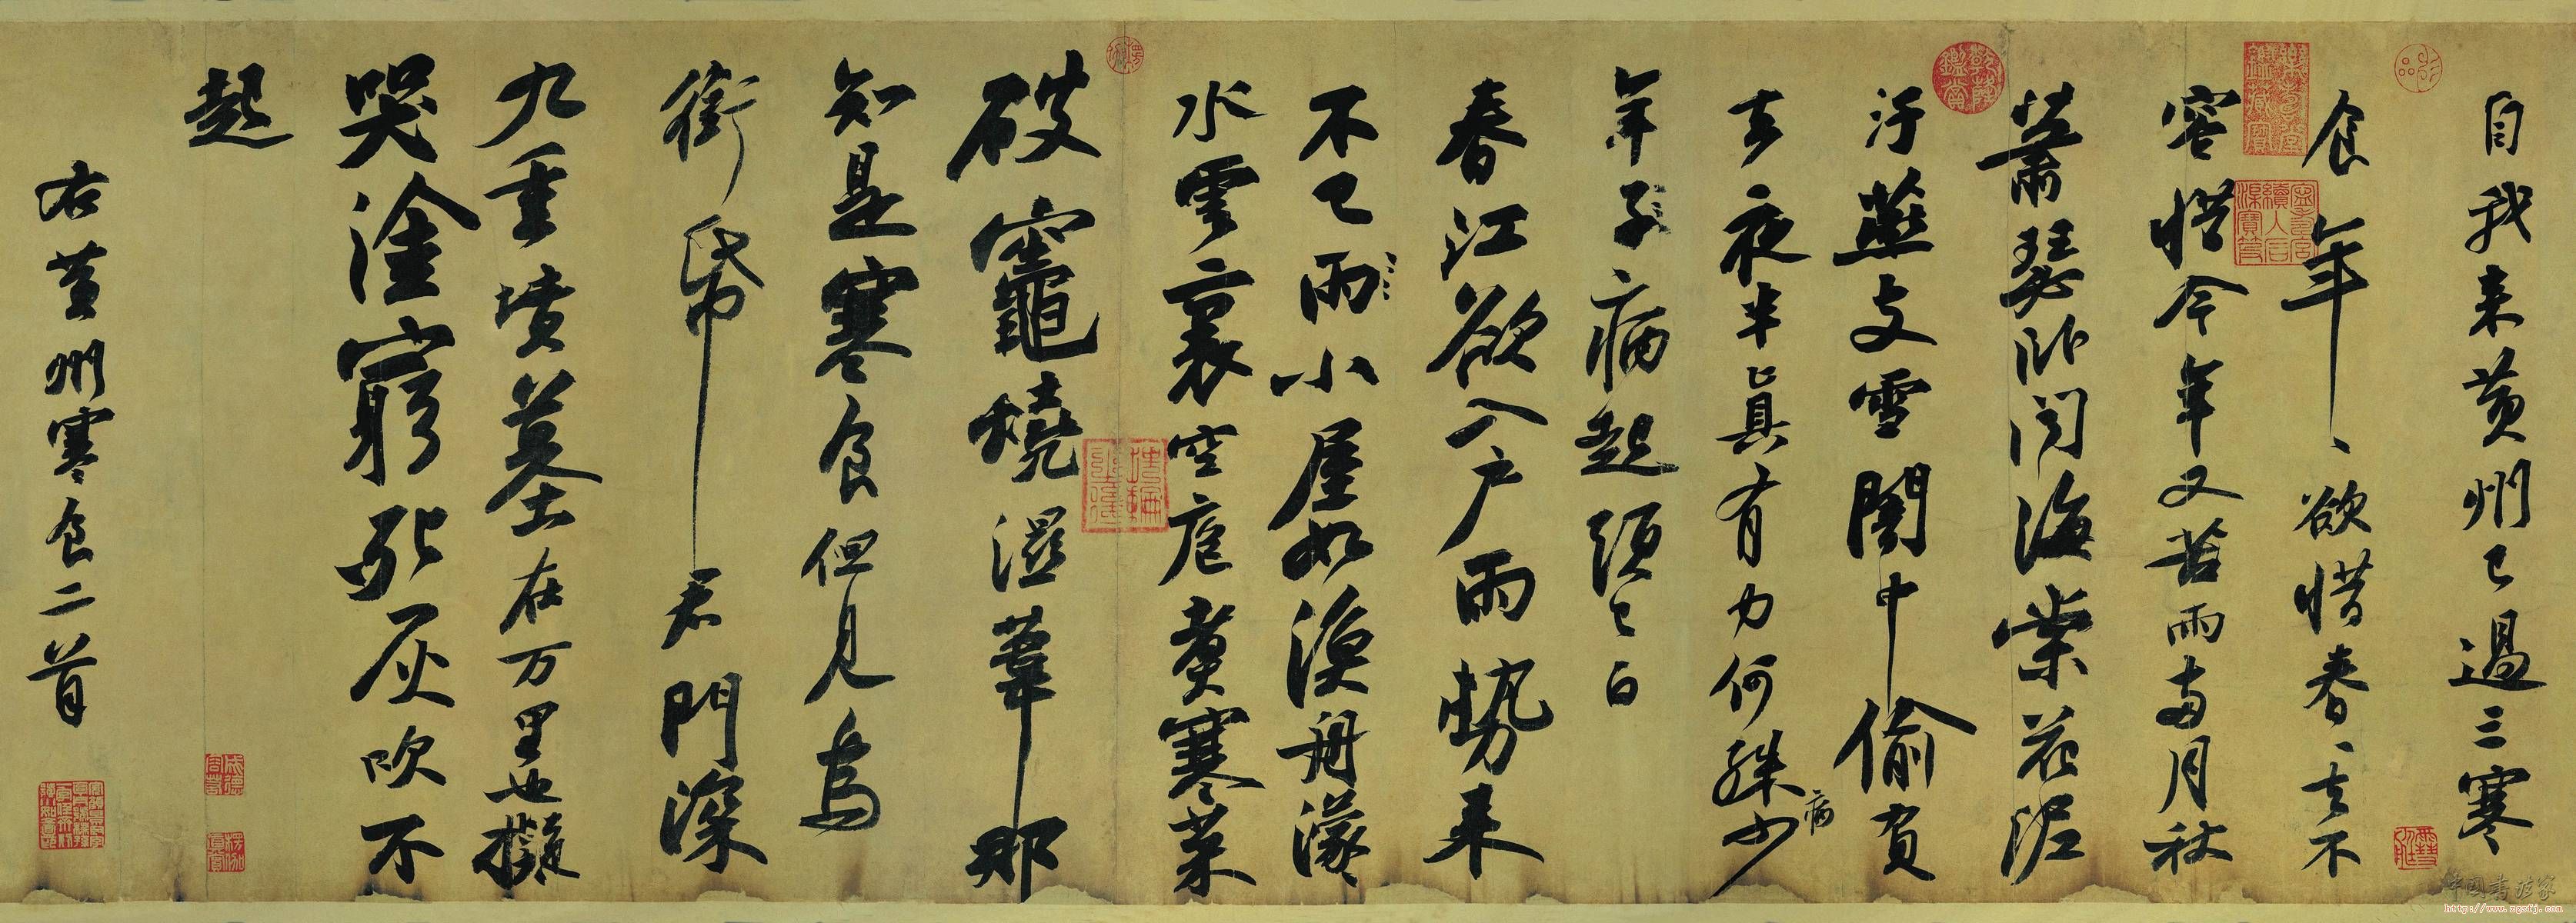 自我来黄州已過三寒
食年、欲惜春、去不
容惜今年又苦雨兩月秋
蕭瑟卧聞海棠花泥
汙燕支雪闇中偷負
去夜半真有力何殊少
病
年子病起頭已白
春江欲入户雨勢来
不已雨小屋如漁舟濛〻
水雲裏空庖煑寒菜
破竈燒濕葦那
知是寒食但見烏
銜帋君門深
九重墳墓在万里也擬
哭塗窮死灰吹不
起
右黄州寒食二首
乾隆鑑賞
中國書法家
http://www.zgsfj.com